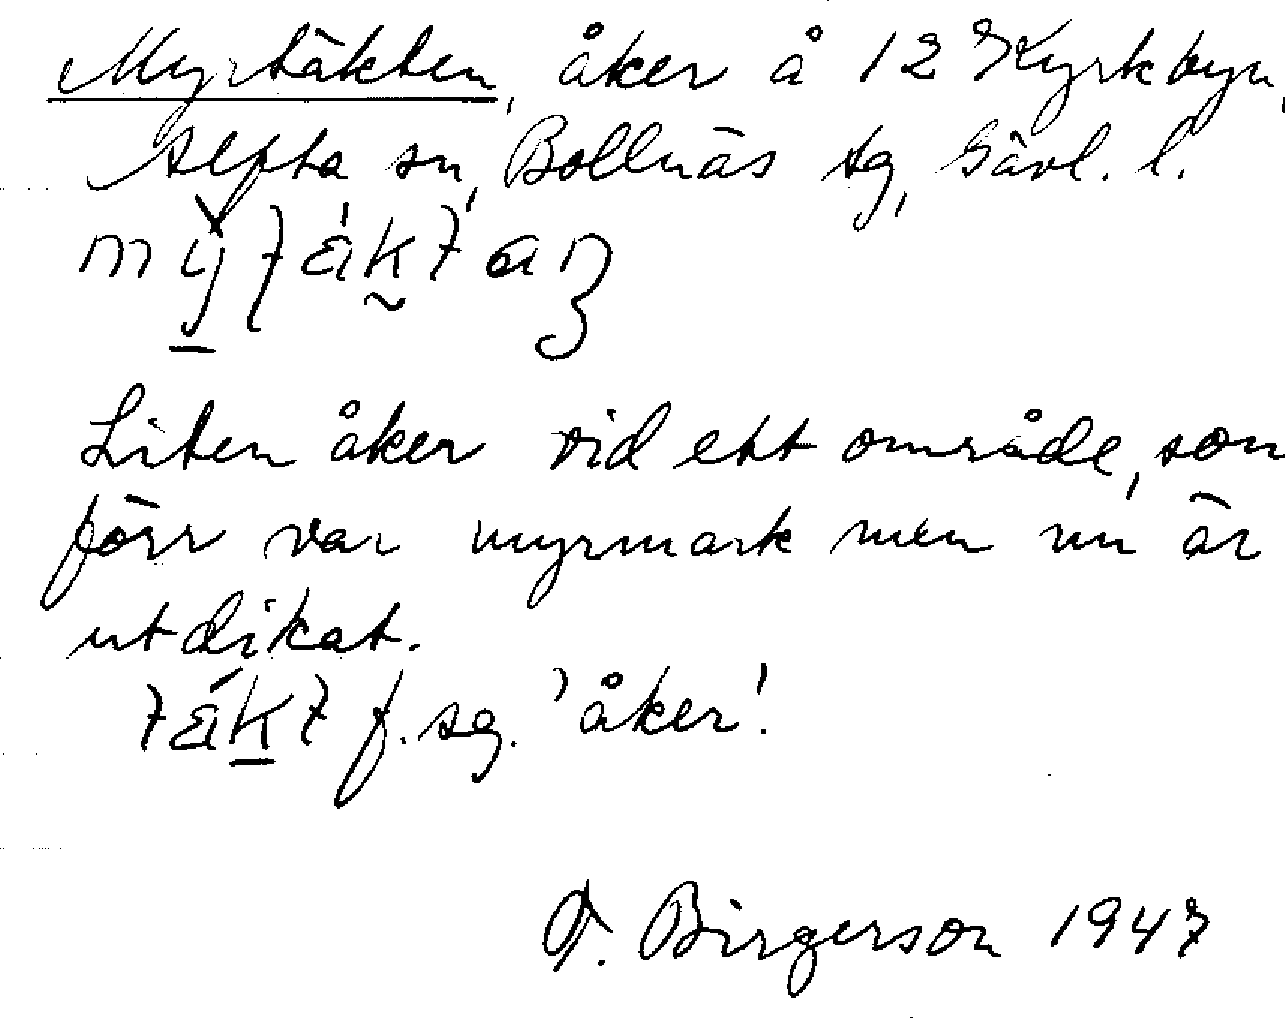 Myrtäkten, åker å 12 Kyrkbyn,
Alfta sn, Bollnäs tg, Gävl. l.
Liten åker vid ett område, som
förr var myrmark men nu är
utdikat.
f. sg. 'åker'.
Birgerson 1947